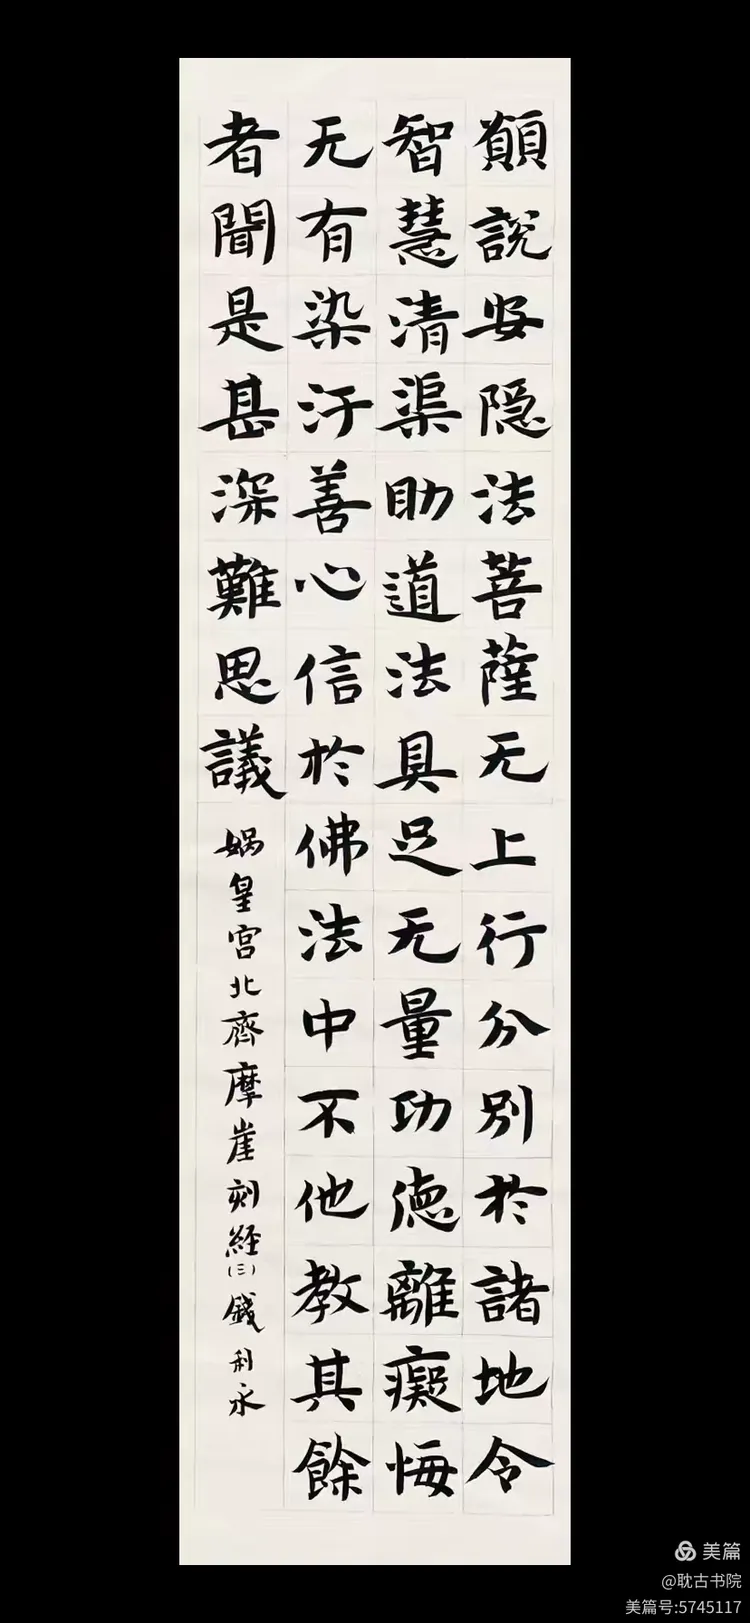 願說安隐法菩薩无上行分別於諸地令
智慧清渠助道法具足无量功德離癡悔
无有染汙善心信於佛法中不他教其餘
者聞是甚深難思議
媧皇宮北齊摩崖刻經(三)錢利永
美篇
@耽古书院
美篇号:5745117